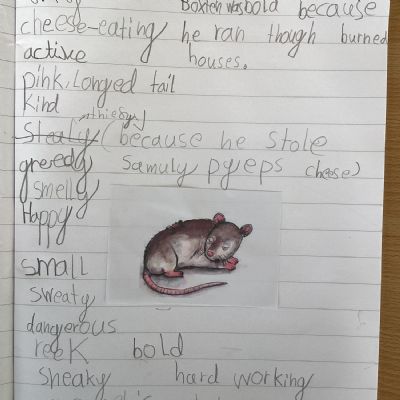 Baxten was bold because
cheese-eating he ran though burned
active houses.
pink, longed tail
Kind
thiefy
Stealy (because he stole
greedy Samuly pyeps cheese)
smelly
Happy
small
sweaty
dangerous
reek bold
Sneaky hard working